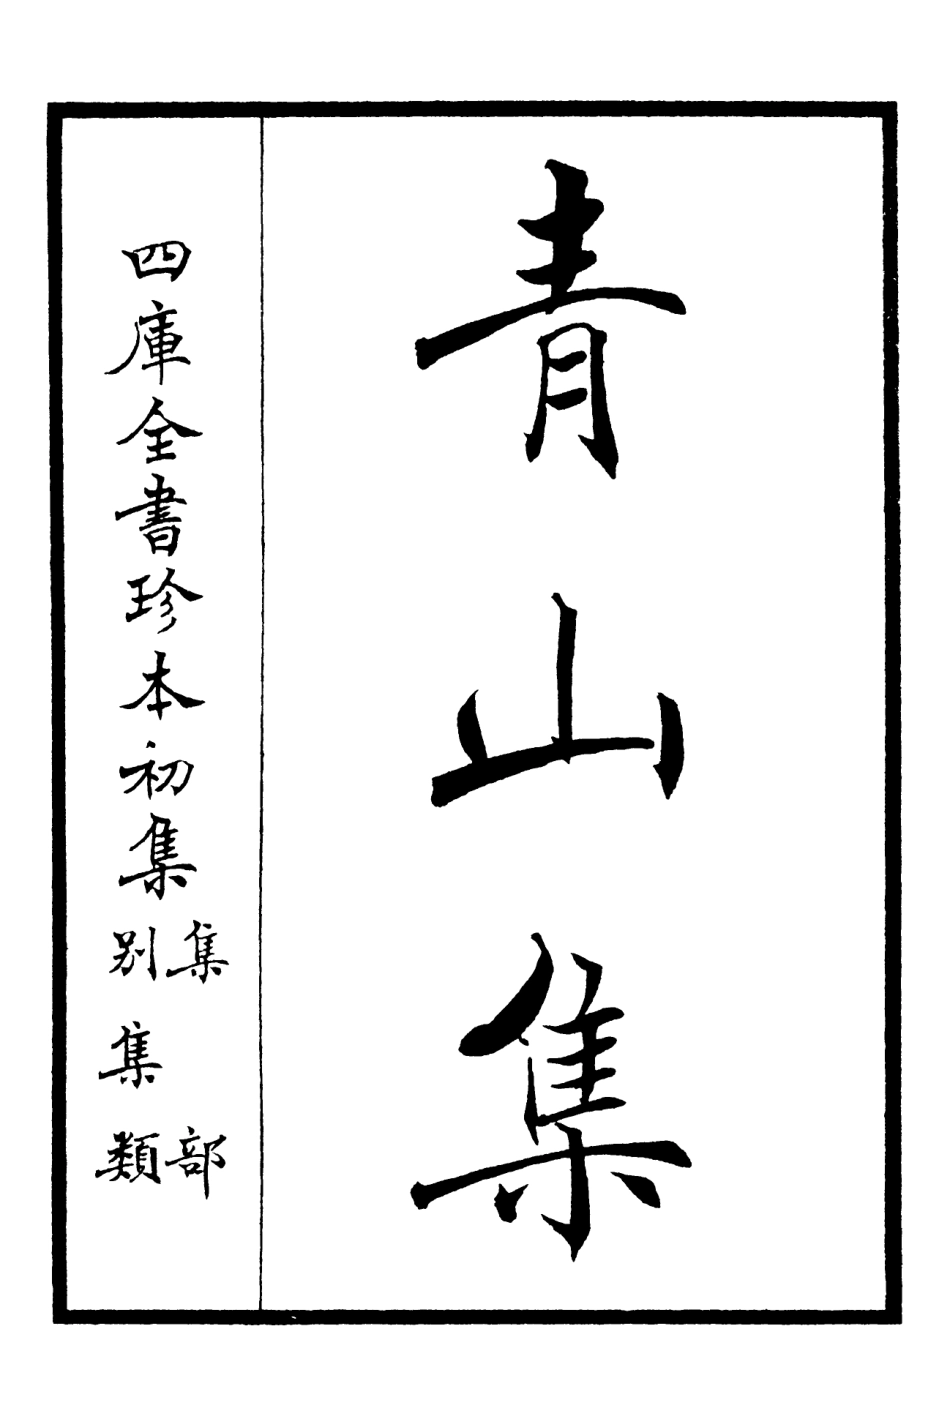 青山集
四庫全書珍本初集
集部
別集類